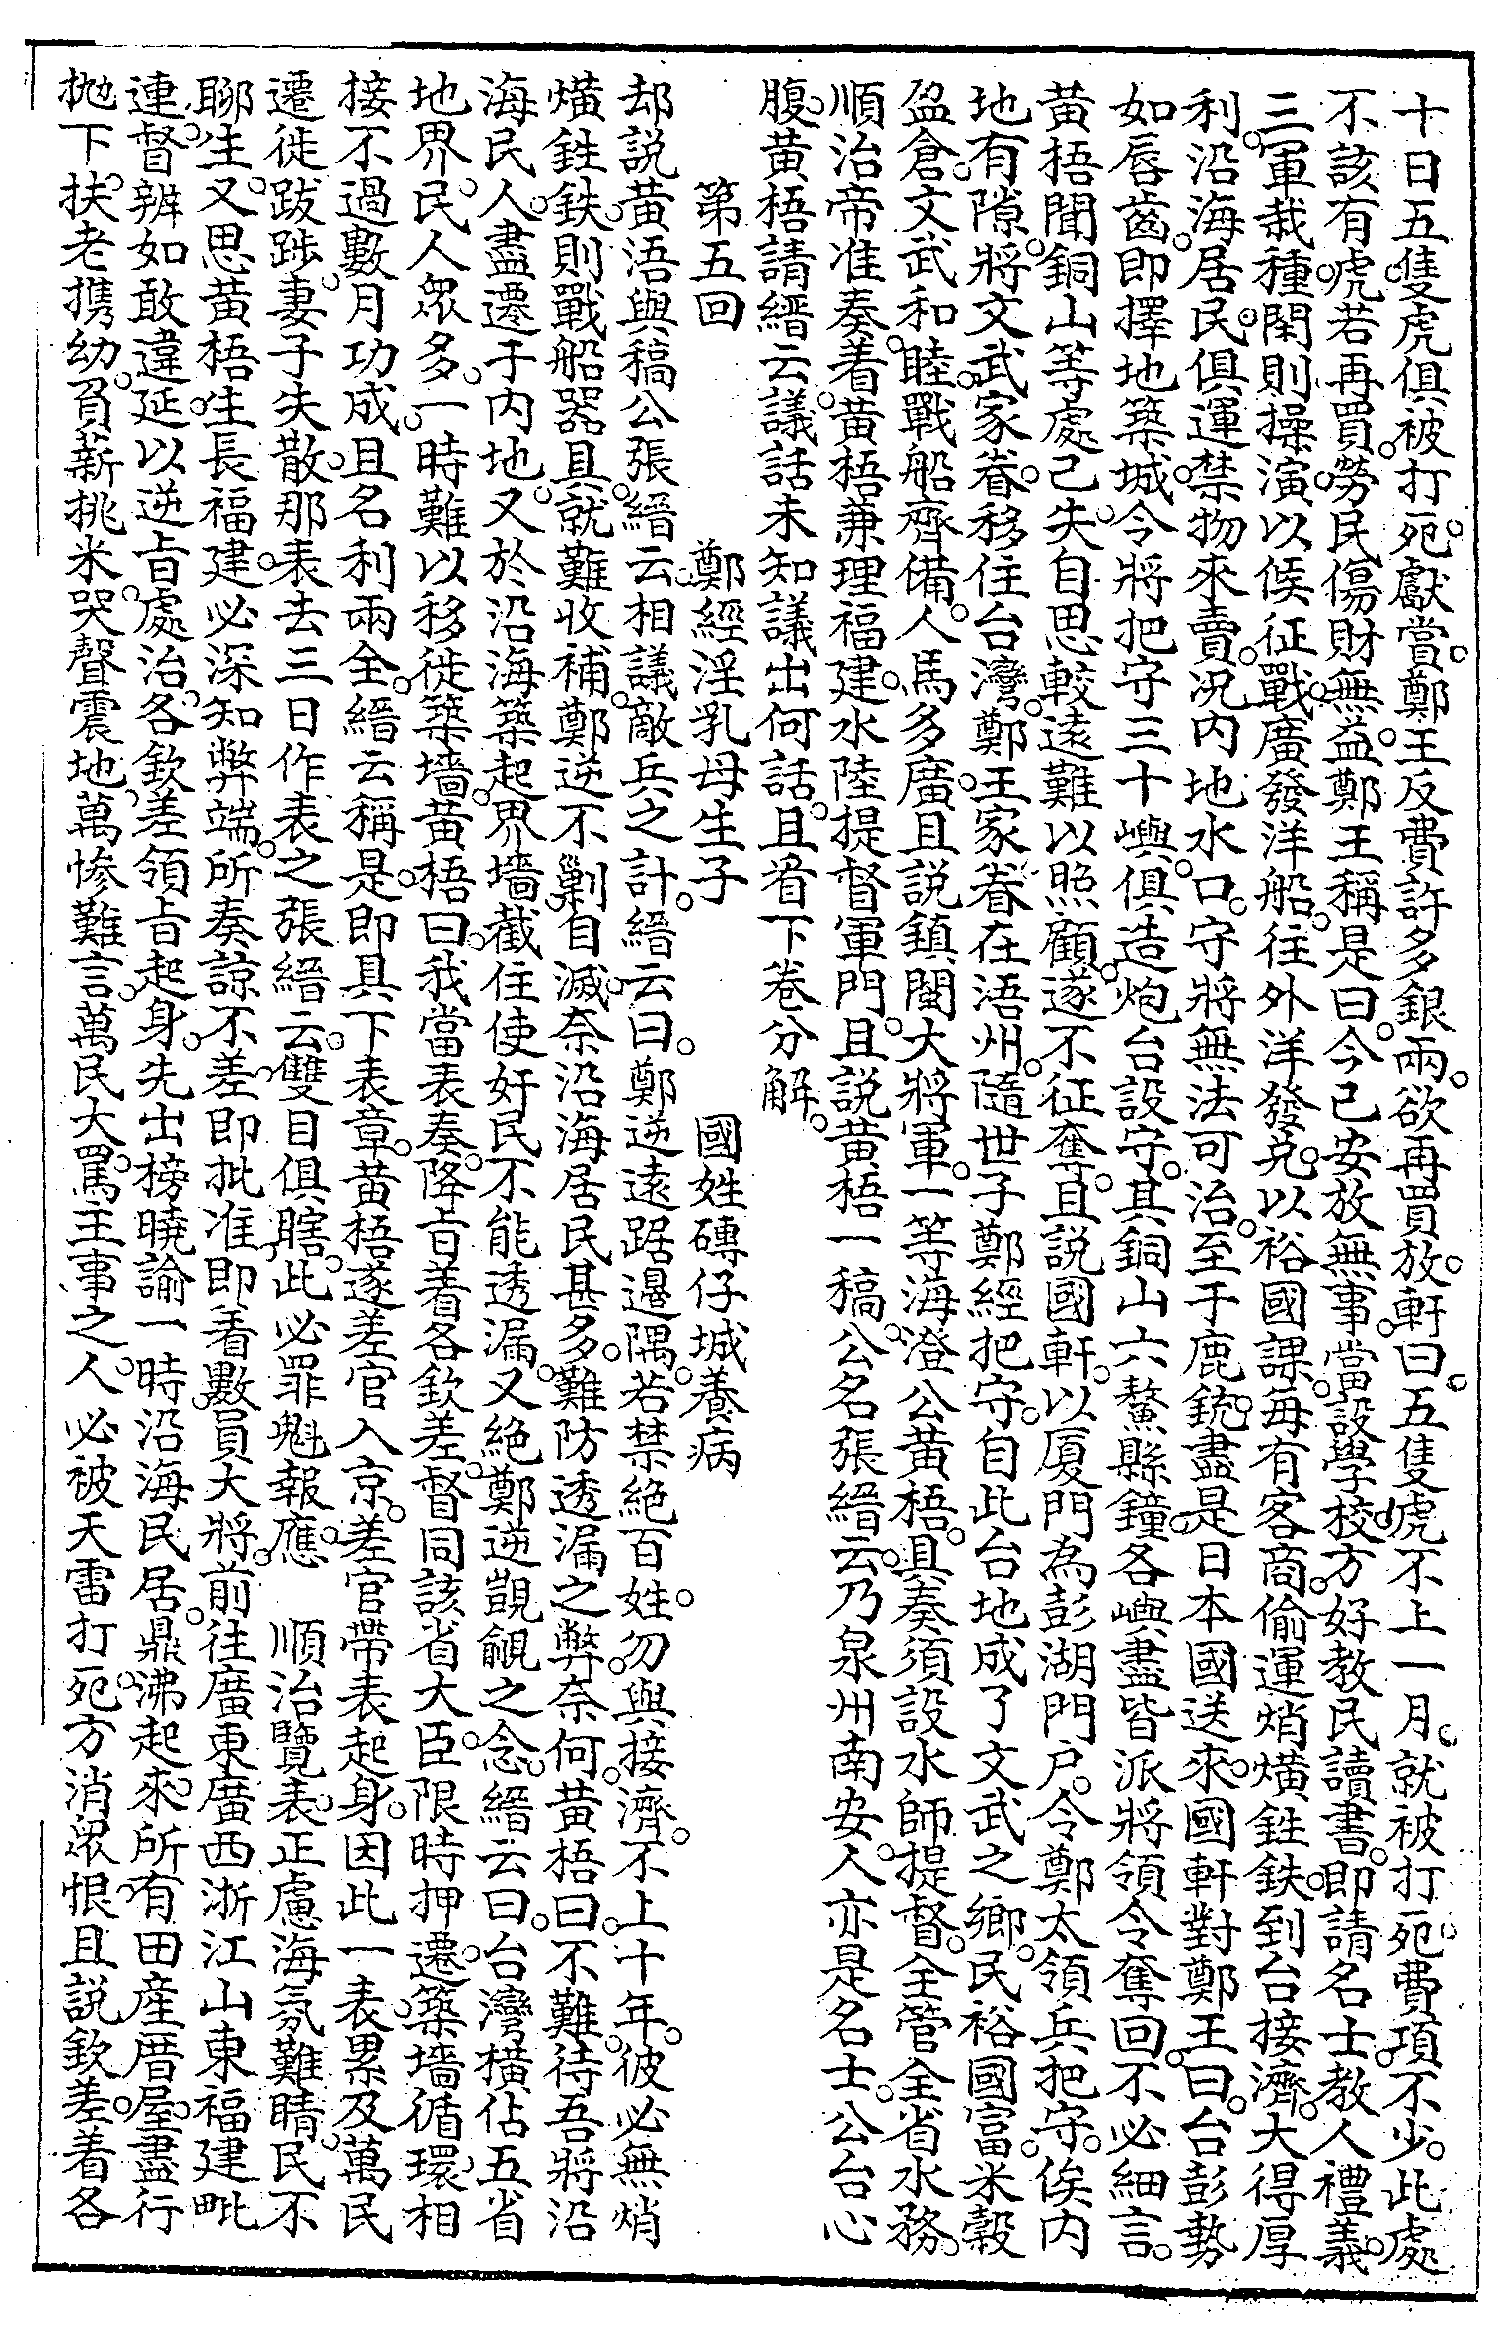 十日五隻虎俱被打死獻當鄭王反費許多銀兩欲再買放軒曰五隻虎不上一月就被打死費項不少此處
不該有虎若再買勞民傷財無益鄭王稱是曰今已安放無事當設學校方好教民讀書即請名士教人禮義
三軍栽種閑則操演以候征戰廣發洋船往外洋發兌以裕國課每有客商偷運焇熿鉎鉄到台接濟大得厚
利沿海居民俱運禁物來賣况內地水口守將無法可治至于鹿銃盡是日本國送來國軒對鄭王曰台彭勢
如唇齒即擇地築城令將把守三十嶼俱造炮台設守其銅山六鰲縣鐘各嶼盡皆派將領令奪回不必細言
黃梧聞銅山等處已失自思較遠難以照顧遂不征奪且説國軒以厦門為彭湖門户令鄭太領兵把守俟內
地有隙將文武家眷移住台灣鄭王家眷在浯州隨世子鄭經把守自此台地成了文武之鄉民裕國富米穀
盈倉文武和睦戰船齊備人馬多廣且説鎮閩大將軍一等海澄公黃梧具奏須設水師提督全管全省水務
順治帝准奏着黃梧兼理福建水陸提督軍門且説黃梧一稿公名張縉云乃泉州南安人亦是名士公台心
腹黃梧請縉云議話未知議出何話且看下卷分解
第五回　鄭經淫乳母生子　國姓磚仔城養病
却説黃浯與稿公張縉云相議敵兵之計縉云曰鄭逆遠踞邉隅若禁絕百姓勿與接濟不上十年彼必無焇
熿鉎鉄則戰船器具就難收補鄭逆不剿自滅奈沿海居民甚多難防透漏之弊奈何黃梧曰不難待吾將沿
海民人盡遷于內地又於沿海築起界墻截住使奸民不能透漏又絕鄭逆覬覦之念縉云曰台灣橫佔五省
地界民人衆多一時難以移徙築墻黃梧曰我當表奏降旨着各欽差督同該省大臣限時押遷築墻循環相
接不過數月功成且名利兩全縉云稱是即具下表章黃梧遂差官入京差官帶表起身因此一表累及萬民
遷徙跋踄妻子失散那表去三日作表之張縉云雙目俱瞎此必罪魁報應　順治覽表正慮海氛難晴民不
聊生又思黃梧生長福建必深知弊端所奏諒不差即批准即着數員大將前往廣東廣西浙江山東福建毗
連督辦如敢違延以逆旨處治各欽差領旨起身先出榜曉諭一時沿海民居鼎沸起來所有田產厝屋盡行
抛下扶老携幼負薪挑米哭聲震地萬慘難言萬民大罵主事之人必被天雷打死方消衆恨且説欽差着各